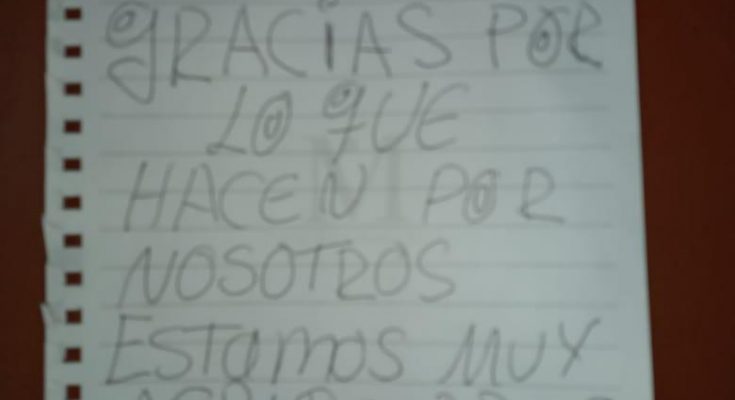 gRACiAS POR
LO qUE
HACEN POR
NOSOTROS
ESTamos MUY